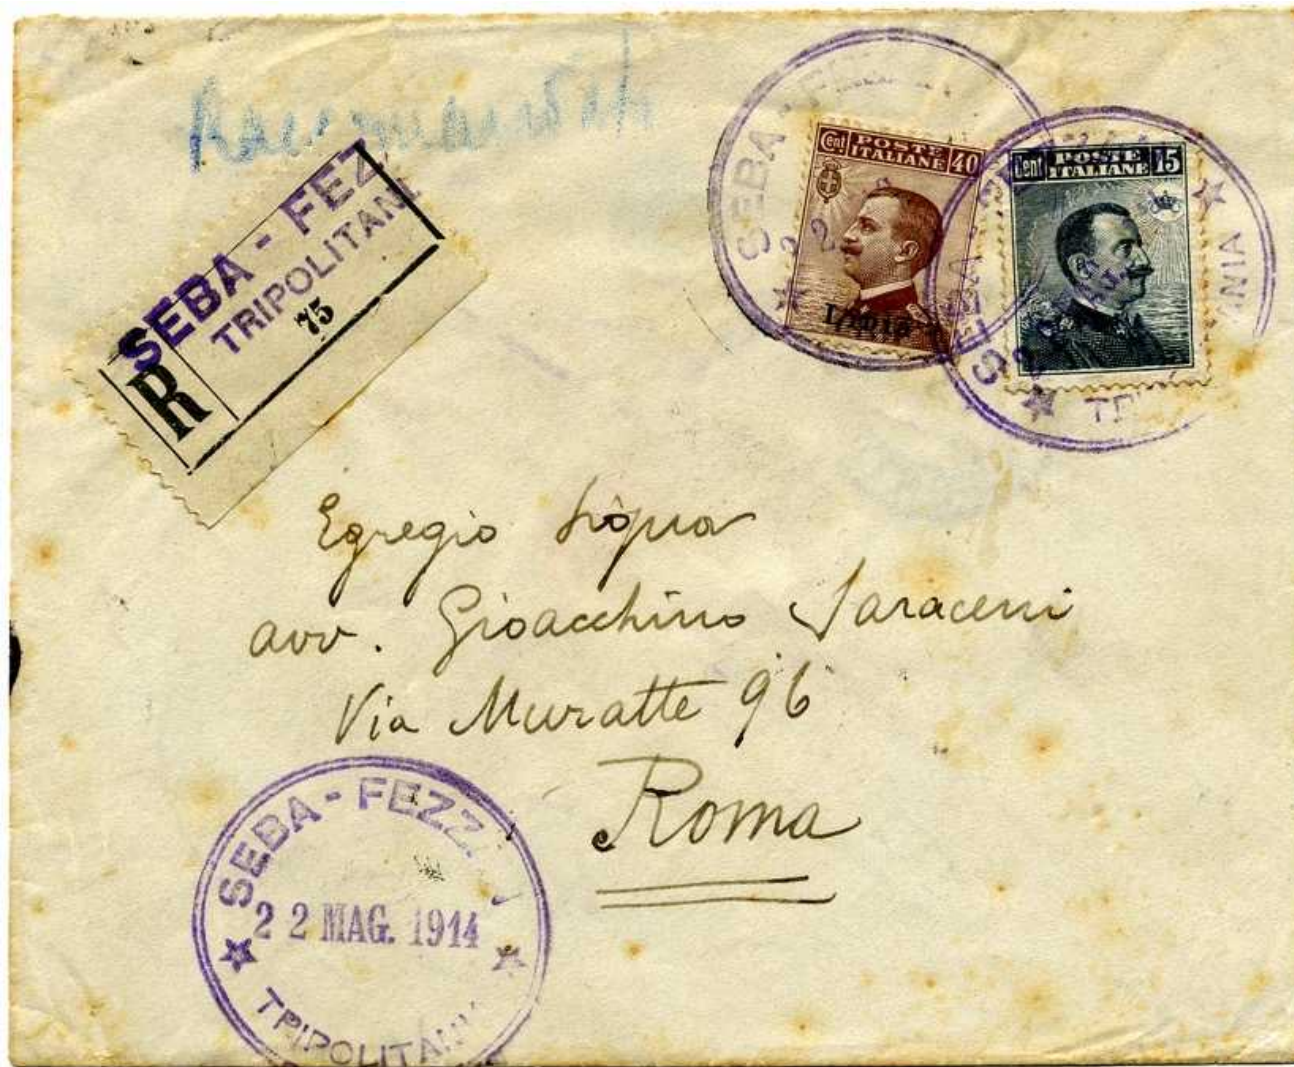 Raccomandata
SEBA - FEZ
TRIPOLITANI
75
R
SEBA
Cent POSTE ITALIANE 40
Libia
SEBA
Cent POSTE ITALIANE 15
ANIA
Egregio
avv. Gioacchino Saraceni
Via Muratte 96
Roma
SEBA - FEZZ
22 MAG. 1914
TRIPOLITANI